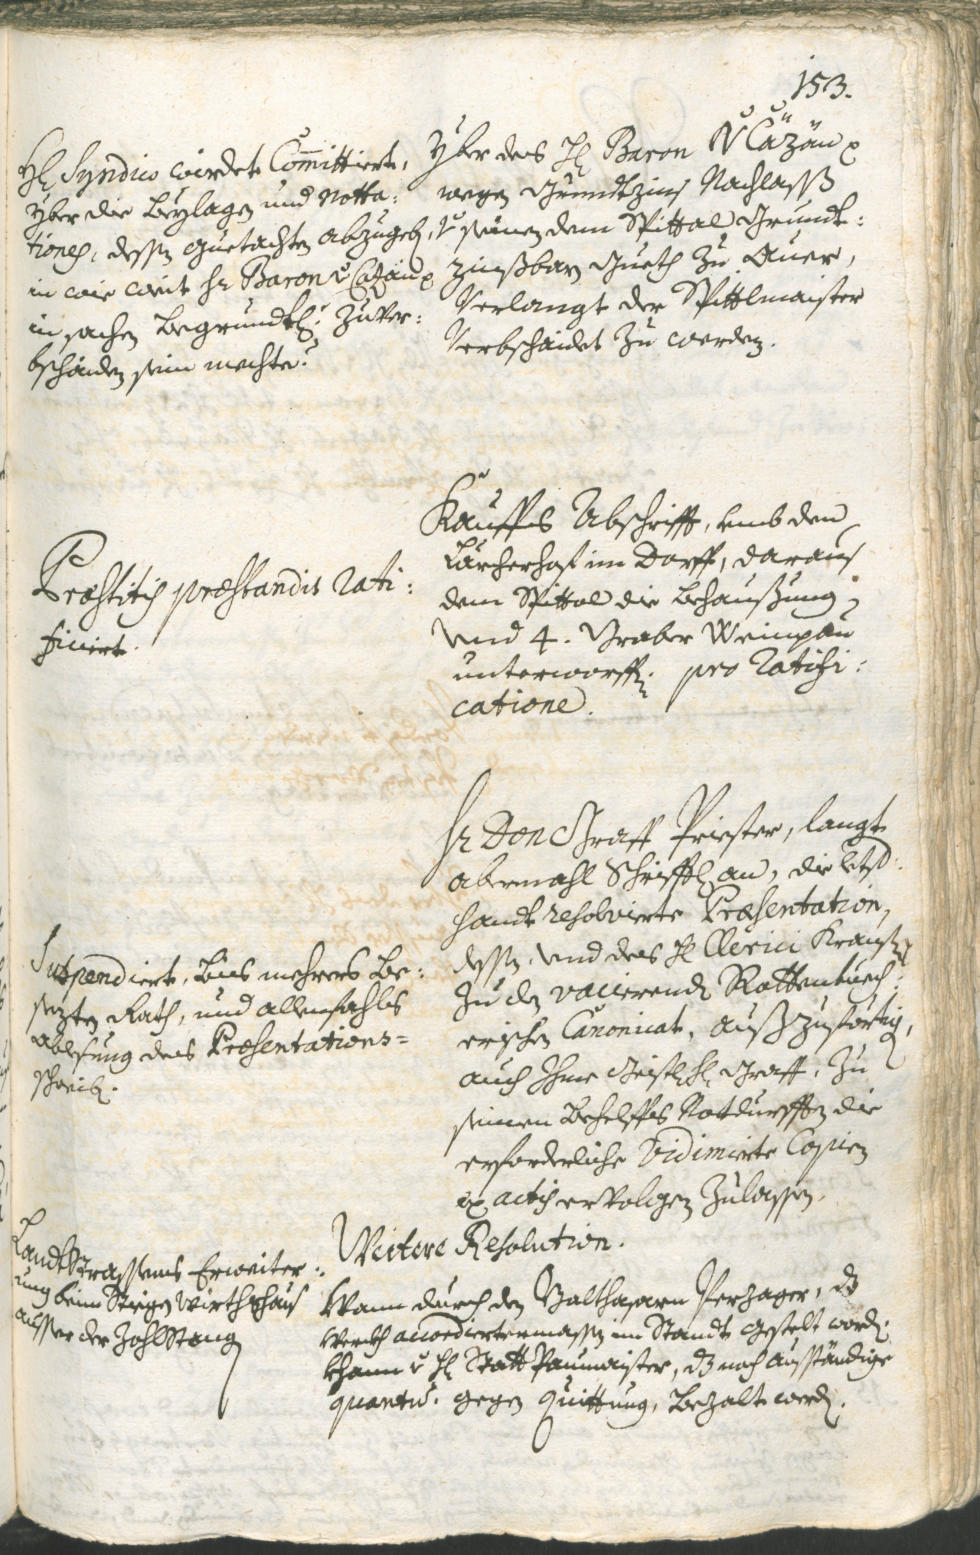 153.
Hl Syndico wirdet Committiert,
yber die Beylagen und Notta:
tiones, dessen guetachten abzugeb.
in wie weit Hr Baron v Cazan
in sachen begrundtl: zu ver:
bschaiden sein mechte?
yber des Hl Baron V Cazan
wegen Grundtzins Nachlasß
v seinen dem Spittal Grundt:
zinßbarn Gueth zu Auer,
Verlangt der Spitlmaister
Verbschaidet zu werden.
Præstitis præstandis rati:
ficiert.
Kauffs Abschrifft, umb den
Lärcherhof im Dorff, daraus
dem Spittal die Behaußung,
und 4. Graber Weinpau
unterworffen. pro ratifi:
catione.
Suspendiert, bis mehrers be:
sezten Rath, und allenfahls
ablesung des Præsentations=
schreib.
Hr Don Graff Priester, langt
abermahl Schrifftl an, die letst:
handt resolvierte Præsentation,
dessen, und des Hl Clerici Krauß
zu den vacierendn Rottenbuech:
erischen Canonicat, außzuförtig,
auch Ihme Geistl: Hl Graff, zu
seinen Behelffs Notdurfften die
erforderliche Vidimierte Copien
ex actis ervolgen zulassen.
Landtstrassens Erweiter:
ung beim Steigen Wirthshaus
ausser der Zohlstang
Weitere Resolution.
Wann durch den Balthasarn Perzager, dz
Werkh accordiertermassen im Standt gestelt word.
khann v Hl Statt Paumaister, dz noch ausständige
quantu. gegen Quittung, bezalt werd.